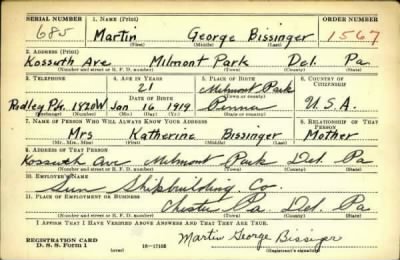 SERIAL NUMBER 1. Name (Print) ORDER NUMBER
685 Martin George Bissinger 1567
(First) (Middle) (Last)
2. Address (Print)
Kossuth Ave Milmont Park Del. Pa.
(Number and street or R. F. D. number) (Town) (County) (State)
3. Telephone 4. Age in Years 5. Place of Birth 6. Country of Citizenship
21 Milmont Park
Ridley Pk. 1420W Date of Birth Penna U.S.A.
Jan 16 1919
(Exchange) (Number) (Mo.) (Day) (Yr.) (State or country)
7. Name of Person Who Will Always Know Your Address 8. Relationship of That Person
Mrs Katherine Bissinger Mother
(Mr., Mrs., Miss) (First) (Middle) (Last)
9. Address of That Person
Kossuth Ave Milmont Park Del. Pa
(Number and street or R. F. D. number) (Town) (County) (State)
10. Employer's Name
Sun Shipbuilding Co.
11. Place of Employment or Business
Chester Pa. Del. Pa
(Number and street or R. F. D. number) (Town) (County) (State)
I Affirm That I Have Verified Above Answers and That They Are True.
REGISTRATION CARD
D. S. S. Form 1 (over) 16—17105 Martin George Bissinger
(Registrant's signature)